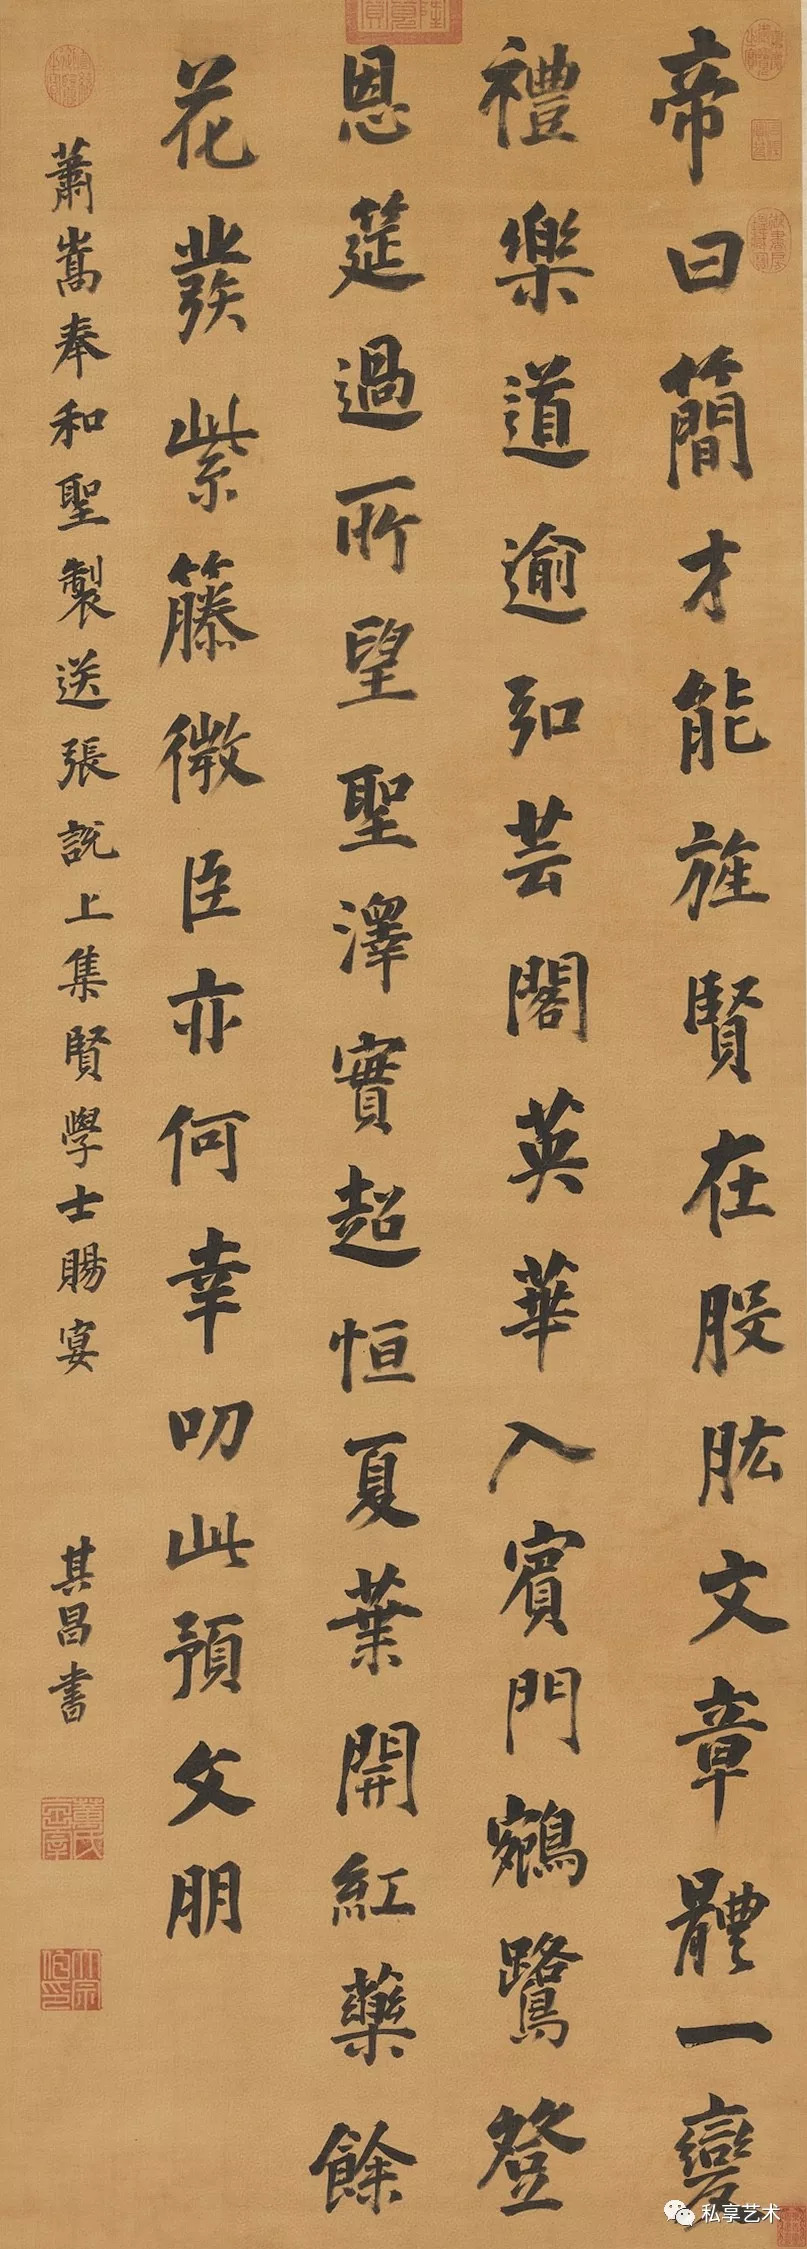 帝曰簡才能旌賢在股肱文章體一變
禮樂道逾弘芸閣英華入賓門鵷鷺登
恩筵過所望聖澤實超恒夏葉開紅藥餘
花發紫籐微臣亦何幸叨此預文朋
蕭嵩奉和聖製送張說上集賢學士賜宴
其昌書
私享艺术